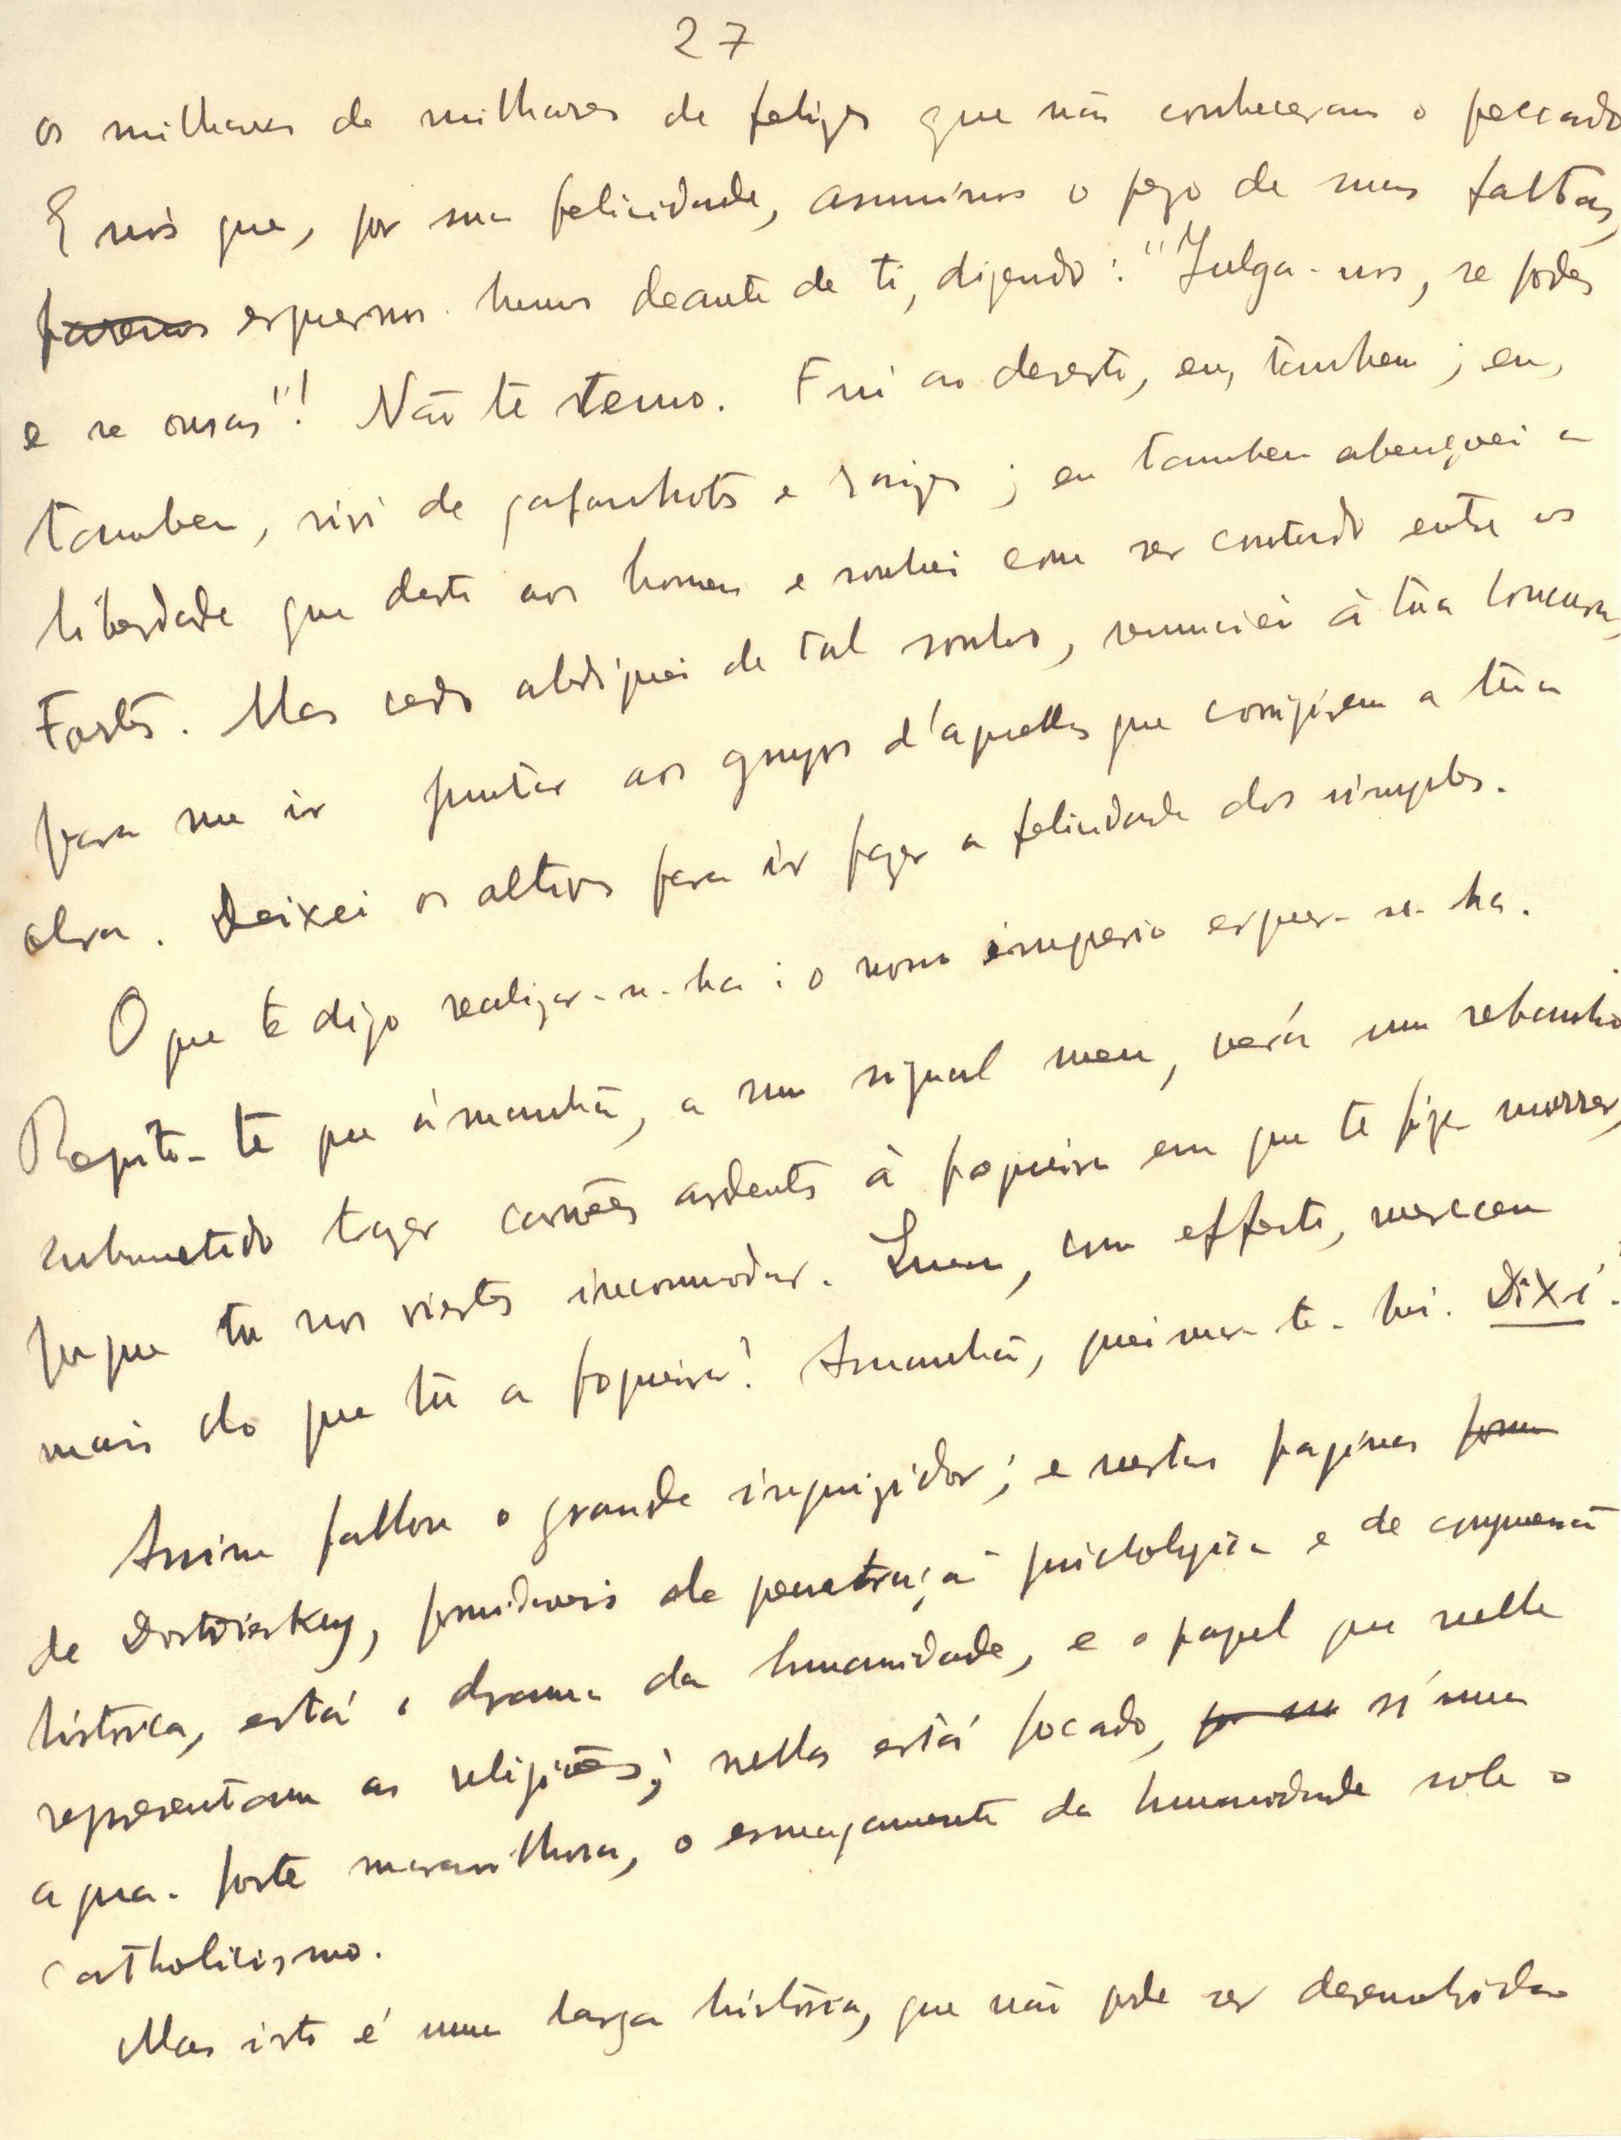 27
os milhares de milhares de felizes que não conheceram o peccado
E nós que, por sua felicidade, asumimos o pezo de suas faltas,
faremos erguernos-hemos deante de ti, dizendo: "Julga-nos, se podes
e se ousas"! Não te temo. Fui ao deserto, eu, tambem; eu,
tambem, vivi de gafanhotos e raizes; eu tambem abençoei a
liberdade que deste aos homens e sonhei com ser contado entre os
Fortes. Mas cedo abdiquei de tal sonho, renunciei á tua loucura,
para me ir juntar aos grupos d'aquelles que corrigirem a tua
obra. Deixei os altivos para ir fazer a felicidade dos simples.
O que te digo realizar-se-ha: o nosso imperio erguer-se-ha.
Repito-te que ámanhã, a um signal meu, verás um rebanho
submetido trazer carvões ardentes á fogueira em que te fize morrer,
porque tu nos viestes incommodar. Quem, com effeito, mereceu
mais do que tu a fogueira? Amanhã, queimar-te-hei. Dixi.
Assim fallou o grande inquizidor; e nestas paginas form
de Dostoiesky, formidaveis de penetração psichologica e de compreensão
historica, está o drama da humanidade, e o papel que nella
representam as religiões; nellas está focado, por um n'uma
agua-forte maravilhosa, o esmagamento da humanidade sob o
catholicismo.
Mas isto é uma larga história, que não pode ser desenvolvida